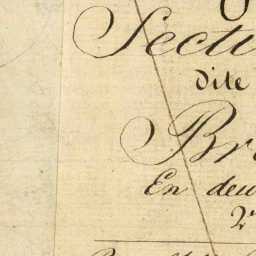 Secti
dite
Br
En deu
2